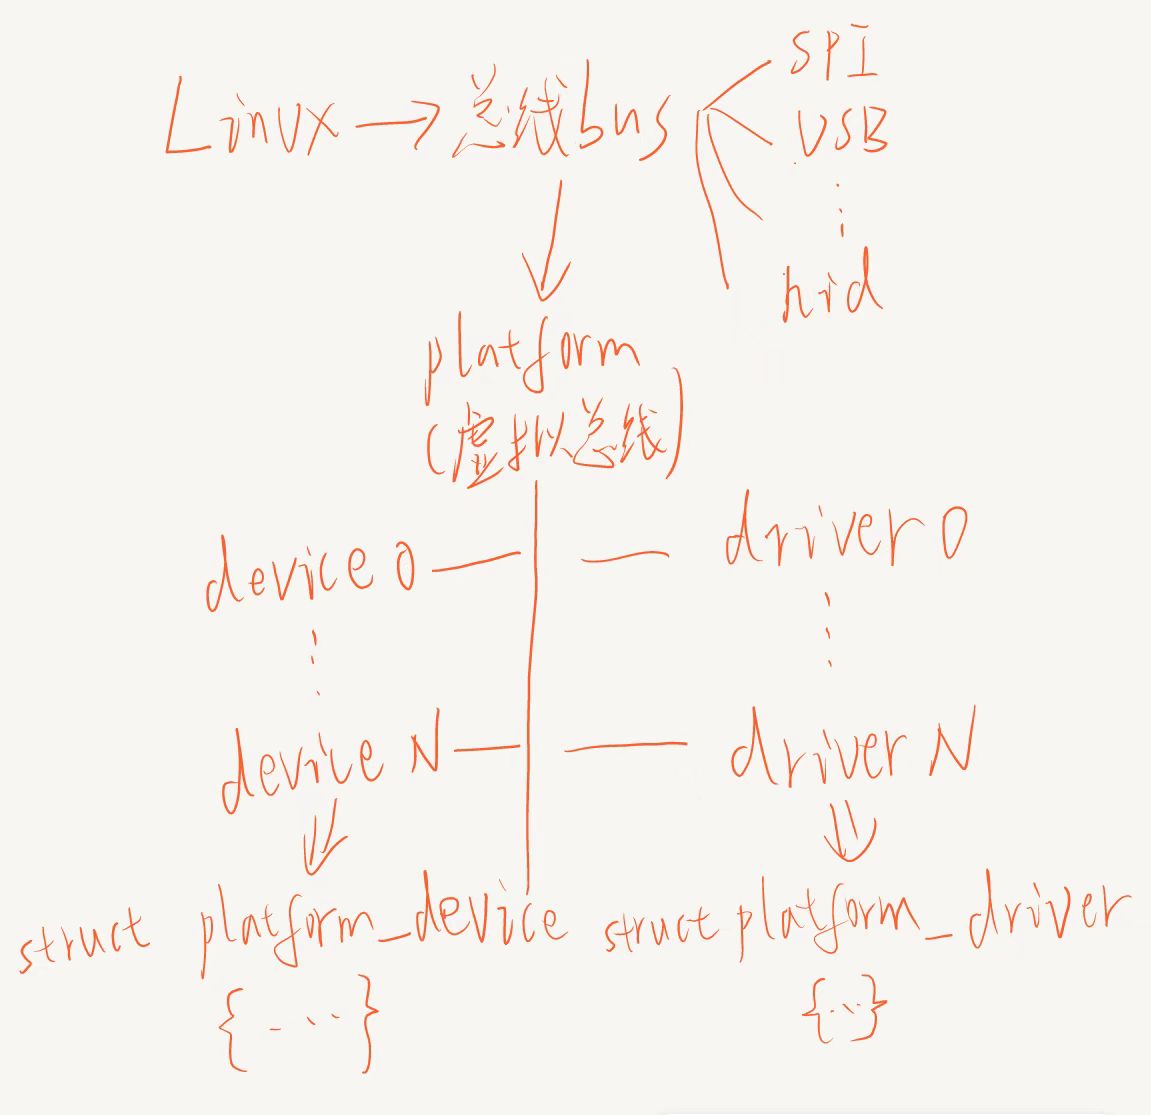 SPI
Linux → 总线bus
USB
⋮
hid
platform
(虚拟总线)
device 0 driver 0
⋮ ⋮
device N driver N
struct platform_device struct platform_driver
{...} {...}